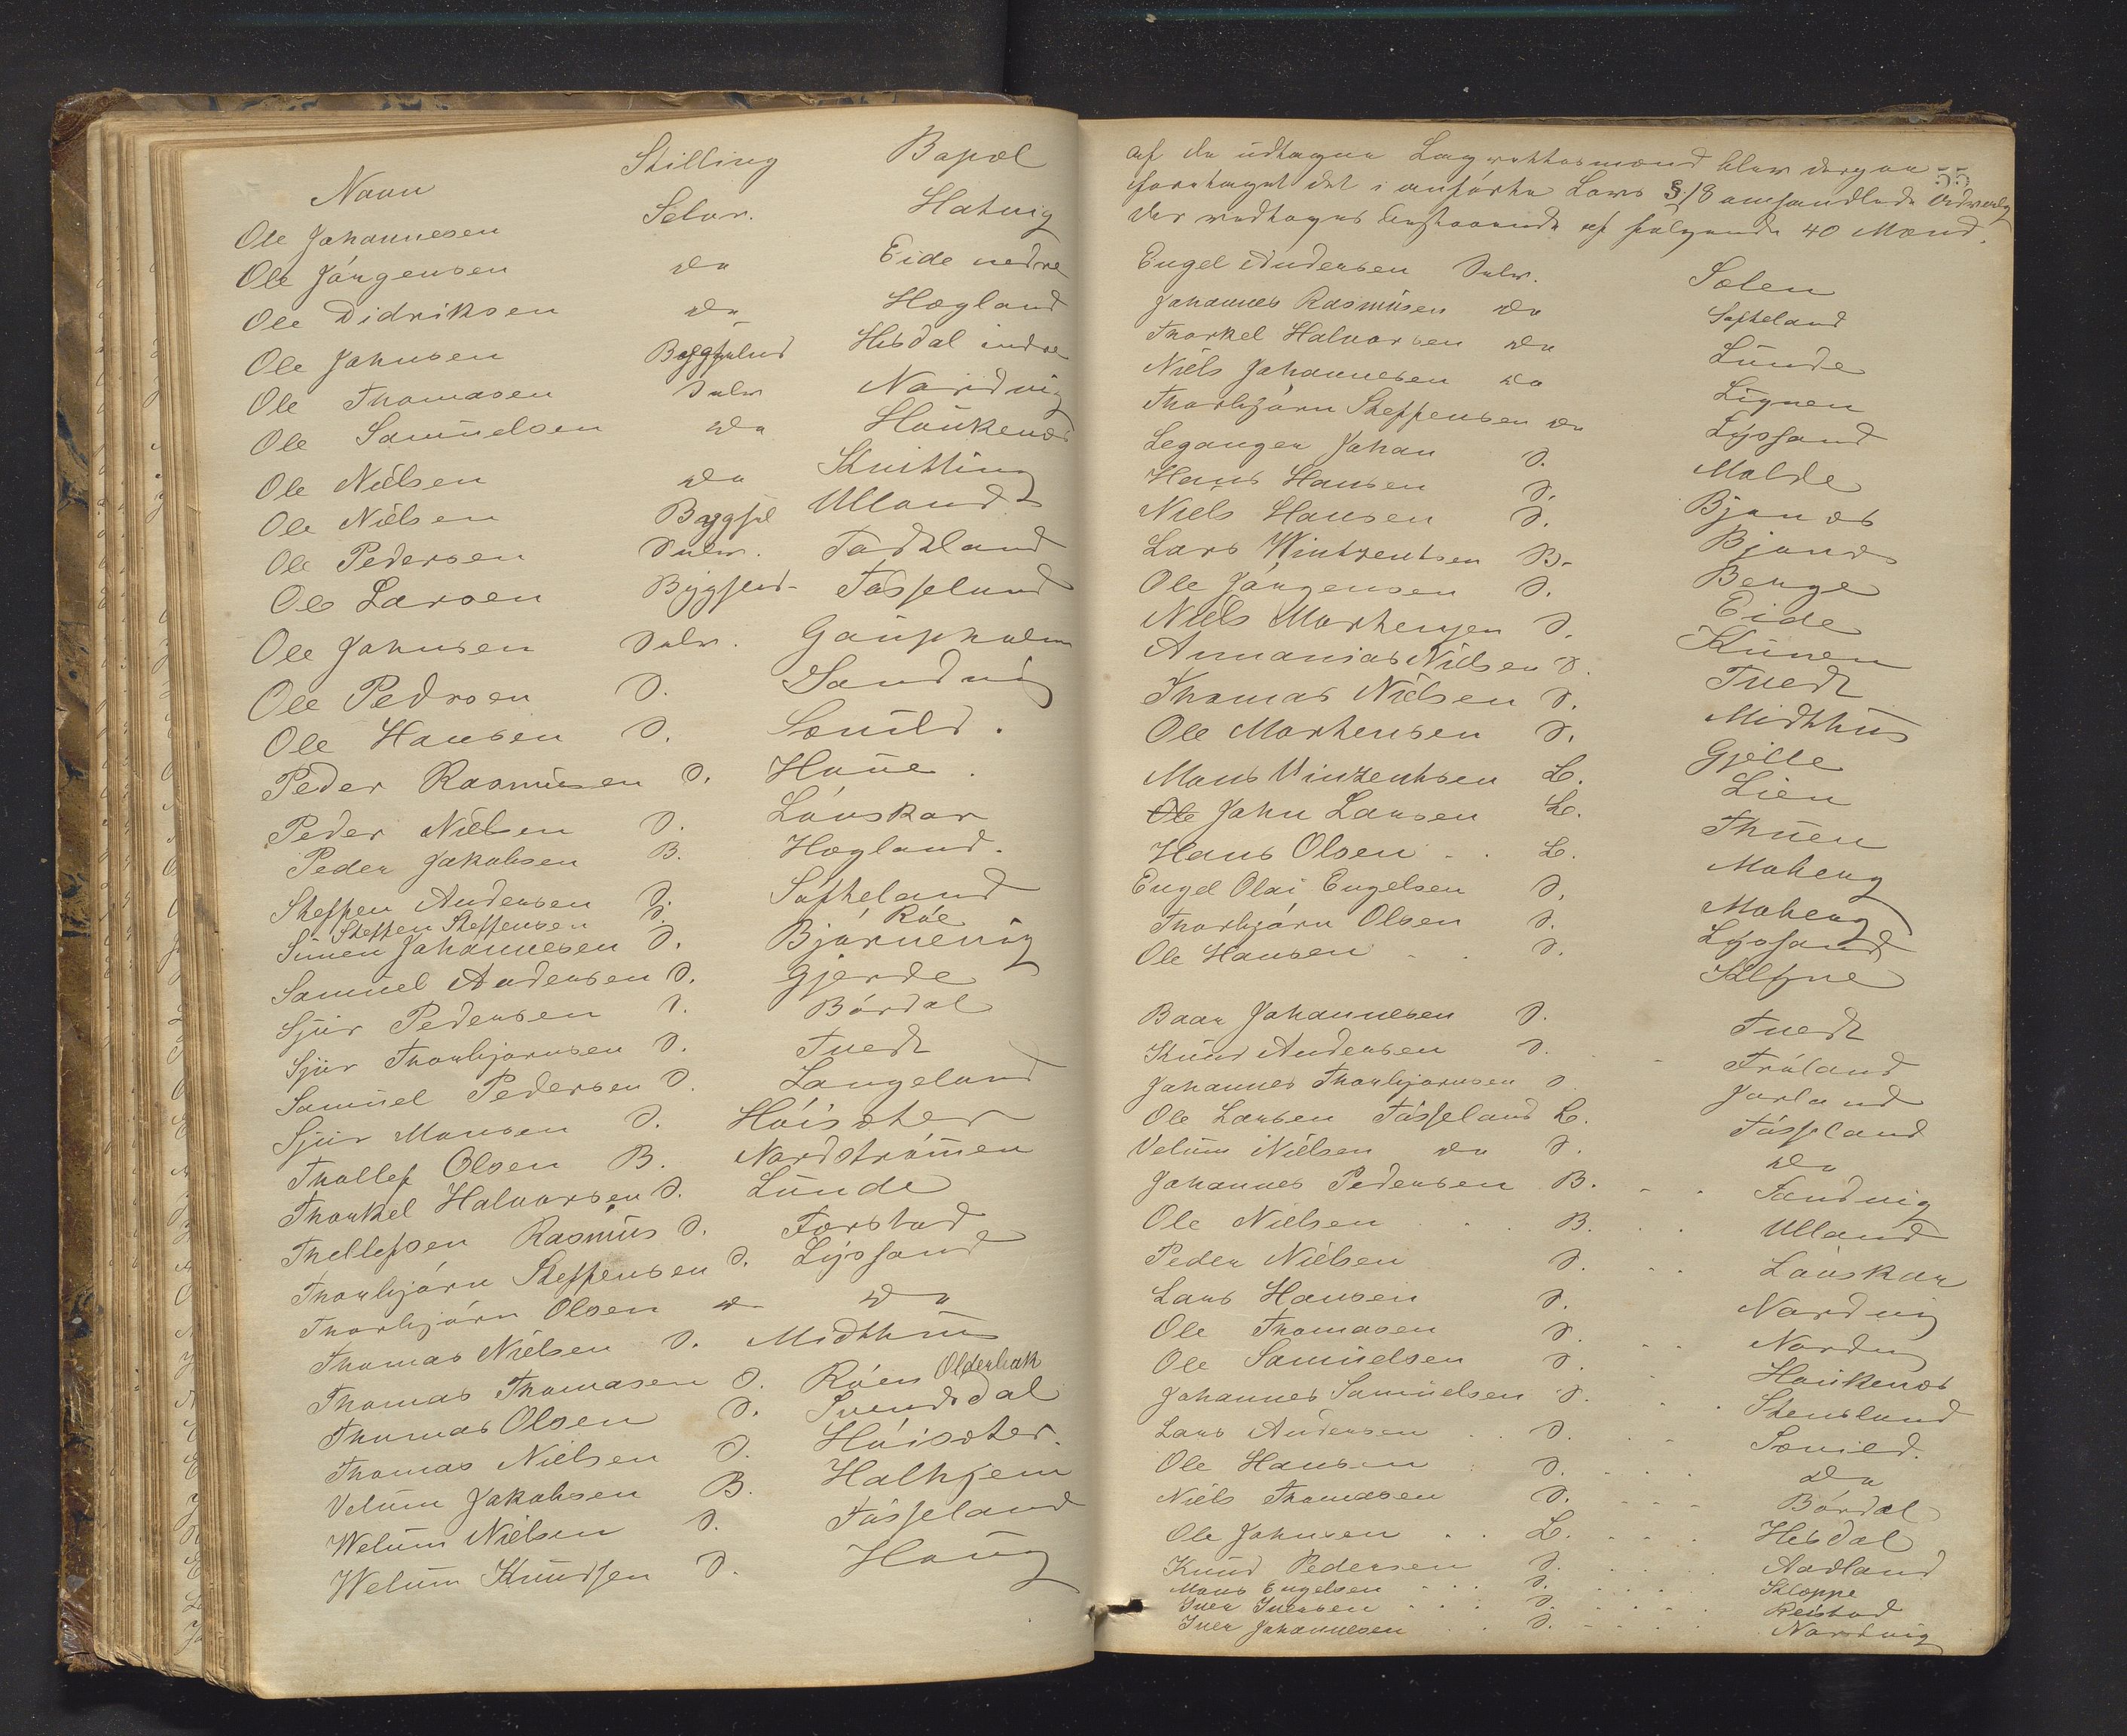 Navn Stilling Bopæl
Ole Johannesen Selv. Hatvig
Ole Jörgensen do Eide nedre
Ole Didriksen do Hægland
Ole Johnsen Hisdal indre
Ole Thomasen Selv Nordvig
Ole Samuelsen do Houkenæs
Ole Nielsen do Skeitting
Ole Nielsen Bygsel Ulland
Ole Pedersen Selv. Tadtland
Ole Larsen Bygsled Tösseland
Ole Johnsen Selv. Gaupholm
Ole Pedrsen S. Sandvig
Ole Hansen S. Særvild.
Peder Rasmusen S. Houe.
Peder Nielsen S. Löuskar
Peder Jakobsen B. Hægland.
Steffen Andersen S. Söfteland
Steffen Steffensen S. Röe
Simen Johannesen S. Björnevig
Samuel Andersen S. Gjerde
Sjur Pedersen S. Bördal
Sjur Thorbjörnsen S. Tuedt
Samuel Pedersen S. Langeland
Sjur Monsen S. Höisæter
Thollef Olsen B. Nordströmen
Thorkel Halvorsen S. Lunde
Thellefsen Rasmus S. Forstad
Thorbjörn Steffensen S. Lysfand
Thorbjörn Olsen do do
Thomas Nielsen S. Midthus
Thomas Thomasen S. Röen Olderbak
Thomas Olsen S. Svendsdal
Thomas Nielsen S. Höisæter.
Velum Jakobsen B. Halhjem
Welum Nielsen S. Tösseland
Welum Knudsen S. Houg
55
af de udtagne Lagrettesmænd blev derpaa
foretaget det i anförte Lovs § 18 omhandlede Udvalg
der vedtoges bestaaende af følgende 40 Mænd.
Engel Andersen Selv. Sælen
Johannes Rasmusen do Söfteland
Thorkel Halvorsen do Lunde
Niels Johannesen do Lignen
Thorbjörn Steffensen do Lysfand
Legangen Johan S. Molde
Hans Hansen S. Bjonæs
Niels Hansen S. Bjonæs
Lars Wintzentsen B. Berge
Ole Jörgensen S. Eide
Niels Mortensen S. Kuven
Annanias Nielsen S. Tuedt
Thomas Nielsen S. Midthus
Ole Mortensen S. Gjelle
Mons Vinzentsen L. Lien
Ole John Larsen L. Thuen
Hans Olsen L. Moberg
Engel Olai Engelsen S. Moberg
Thorbjörn Olsen S. Lysfand
Ole Hansen S.
Baar Johannesen S. Tuedt
Knud Andersen S. Fröland
Johannes Thorbjörnsen S. Jarland
Ole Larsen Tösseland L. Tösseland
Velum Nielsen do S. do
Johannes Pedersen B. Sandvig
Ole Nielsen B. Ulland
Peder Nielsen S. Löuskar
Lars Hansen S. Nordvig
Ole Thomasen S. Nordvig
Ole Samuelsen S. Houkenæs
Johannes Samuelsen S. Stensland
Lars Andersen S. Særvild.
Ole Hansen S. do
Niels Thomasen S. Bördal
Ole Johnsen L. Hisdal
Knud Pedersen S. Aadland
Mons Engelsen S. Skloppe
Iver Iversen S. Reistad
Iver Johannesen S. Nordvig